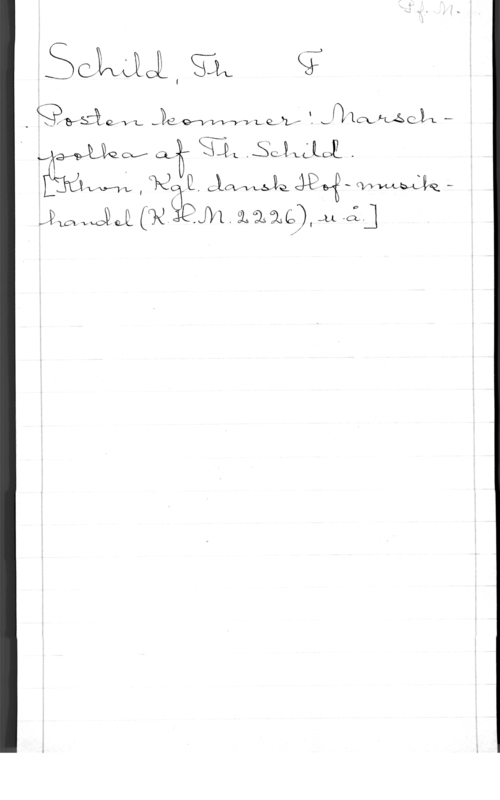 Pf. M.
Schild, Th F
Posten kommer! Marsch-
polka af Th. Schild.
[Khvn, Kgl. dansk Hof-musik-
handel (K.H.M. 2226), u.å.]